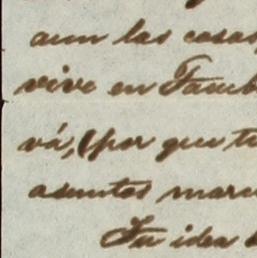 aun las cosas
vive en Tamb
vá, (por que tu
asuntos marc
Tu idea